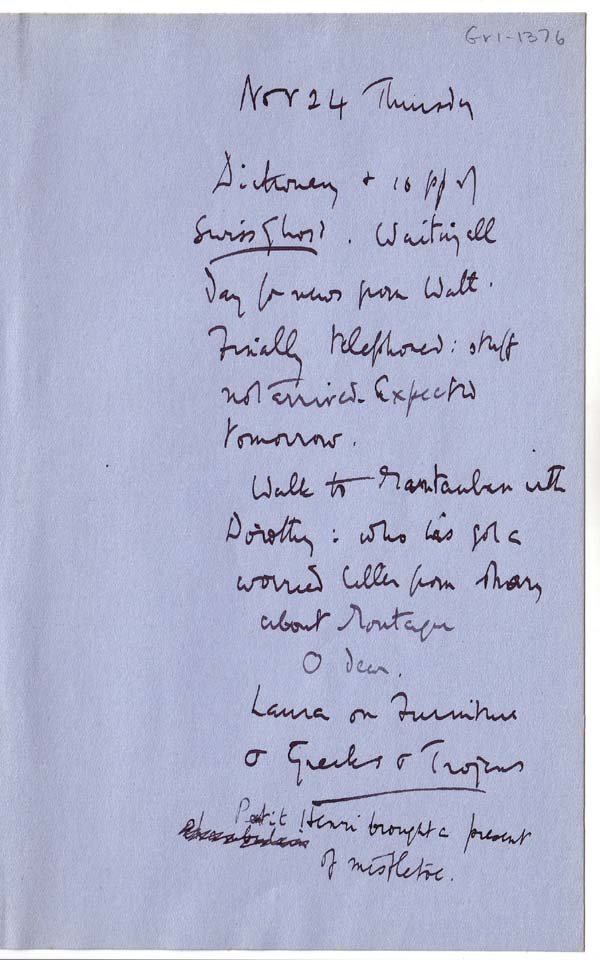 Gr1-1376
Nov 24 Thursday
Dictionary + 10 pp of
Swiss Ghost. Waiting all
Day for news from Watt.
Finally telephoned: stuff
not arrived. Expected
tomorrow.
Walk to Montauban with
Dorothy: who has got a
worried letter from Mary
about Montague
O dear.
Laura on Furniture
& Greeks & Trojans
Petit Henri brought a present
of mistletoe.